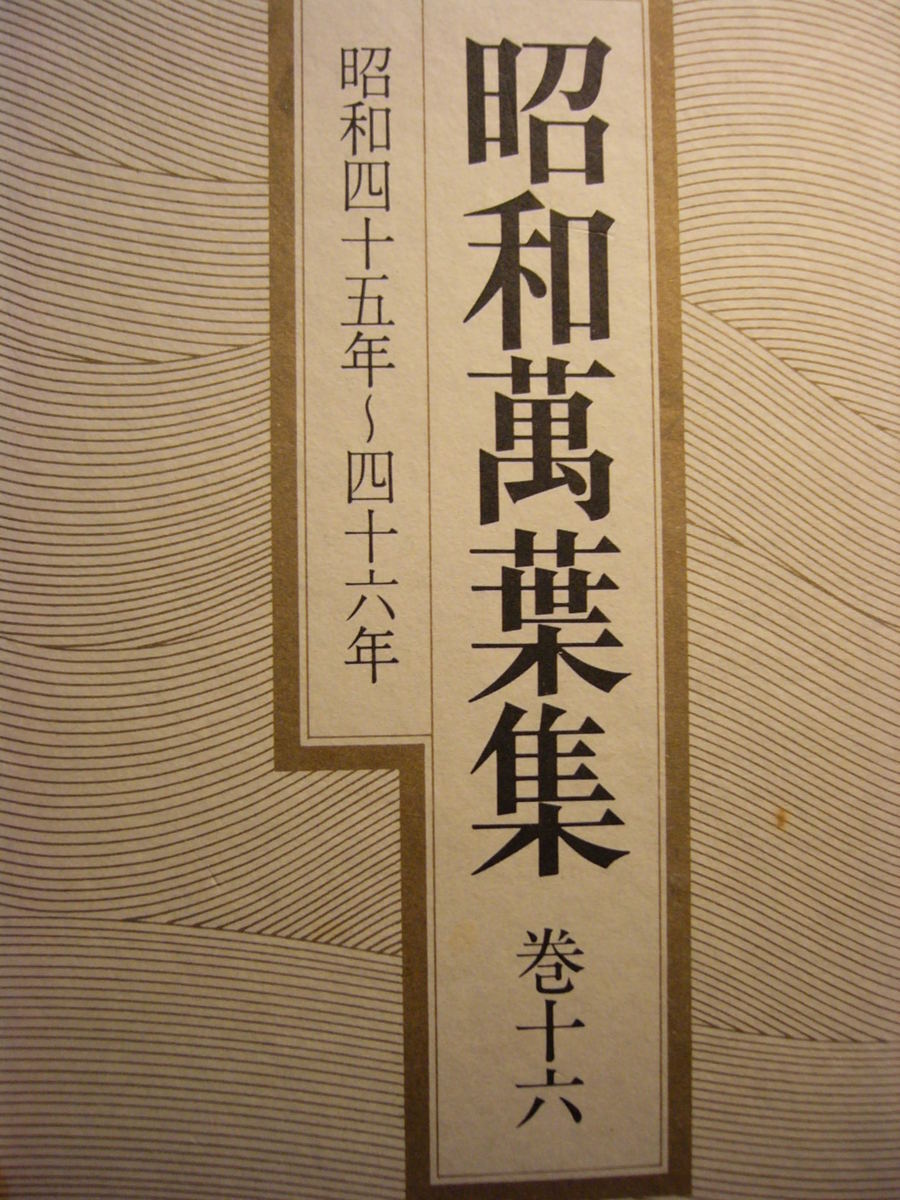 昭和萬葉集 巻十六
昭和四十五年～四十六年